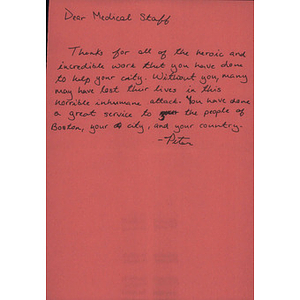 Dear Medical Staff
Thanks for all of the heroic and
incredible work that you have done
to help your city. Without you, many
may have lost their lives in this
horrible inhumane attack. You have done
a great service to the people of
Boston, your city, and your country.
-Peter